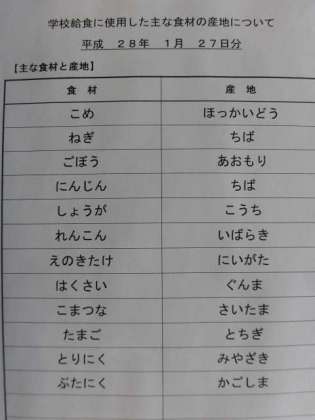 学校給食に使用した主な食材の産地について
平成 28年 1月 27日分
【主な食材と産地】
食 材 産 地
こめ ほっかいどう
ねぎ ちば
ごぼう あおもり
にんじん ちば
しょうが こうち
れんこん いばらき
えのきたけ にいがた
はくさい ぐんま
こまつな さいたま
たまご とちぎ
とりにく みやざき
ぶたにく かごしま